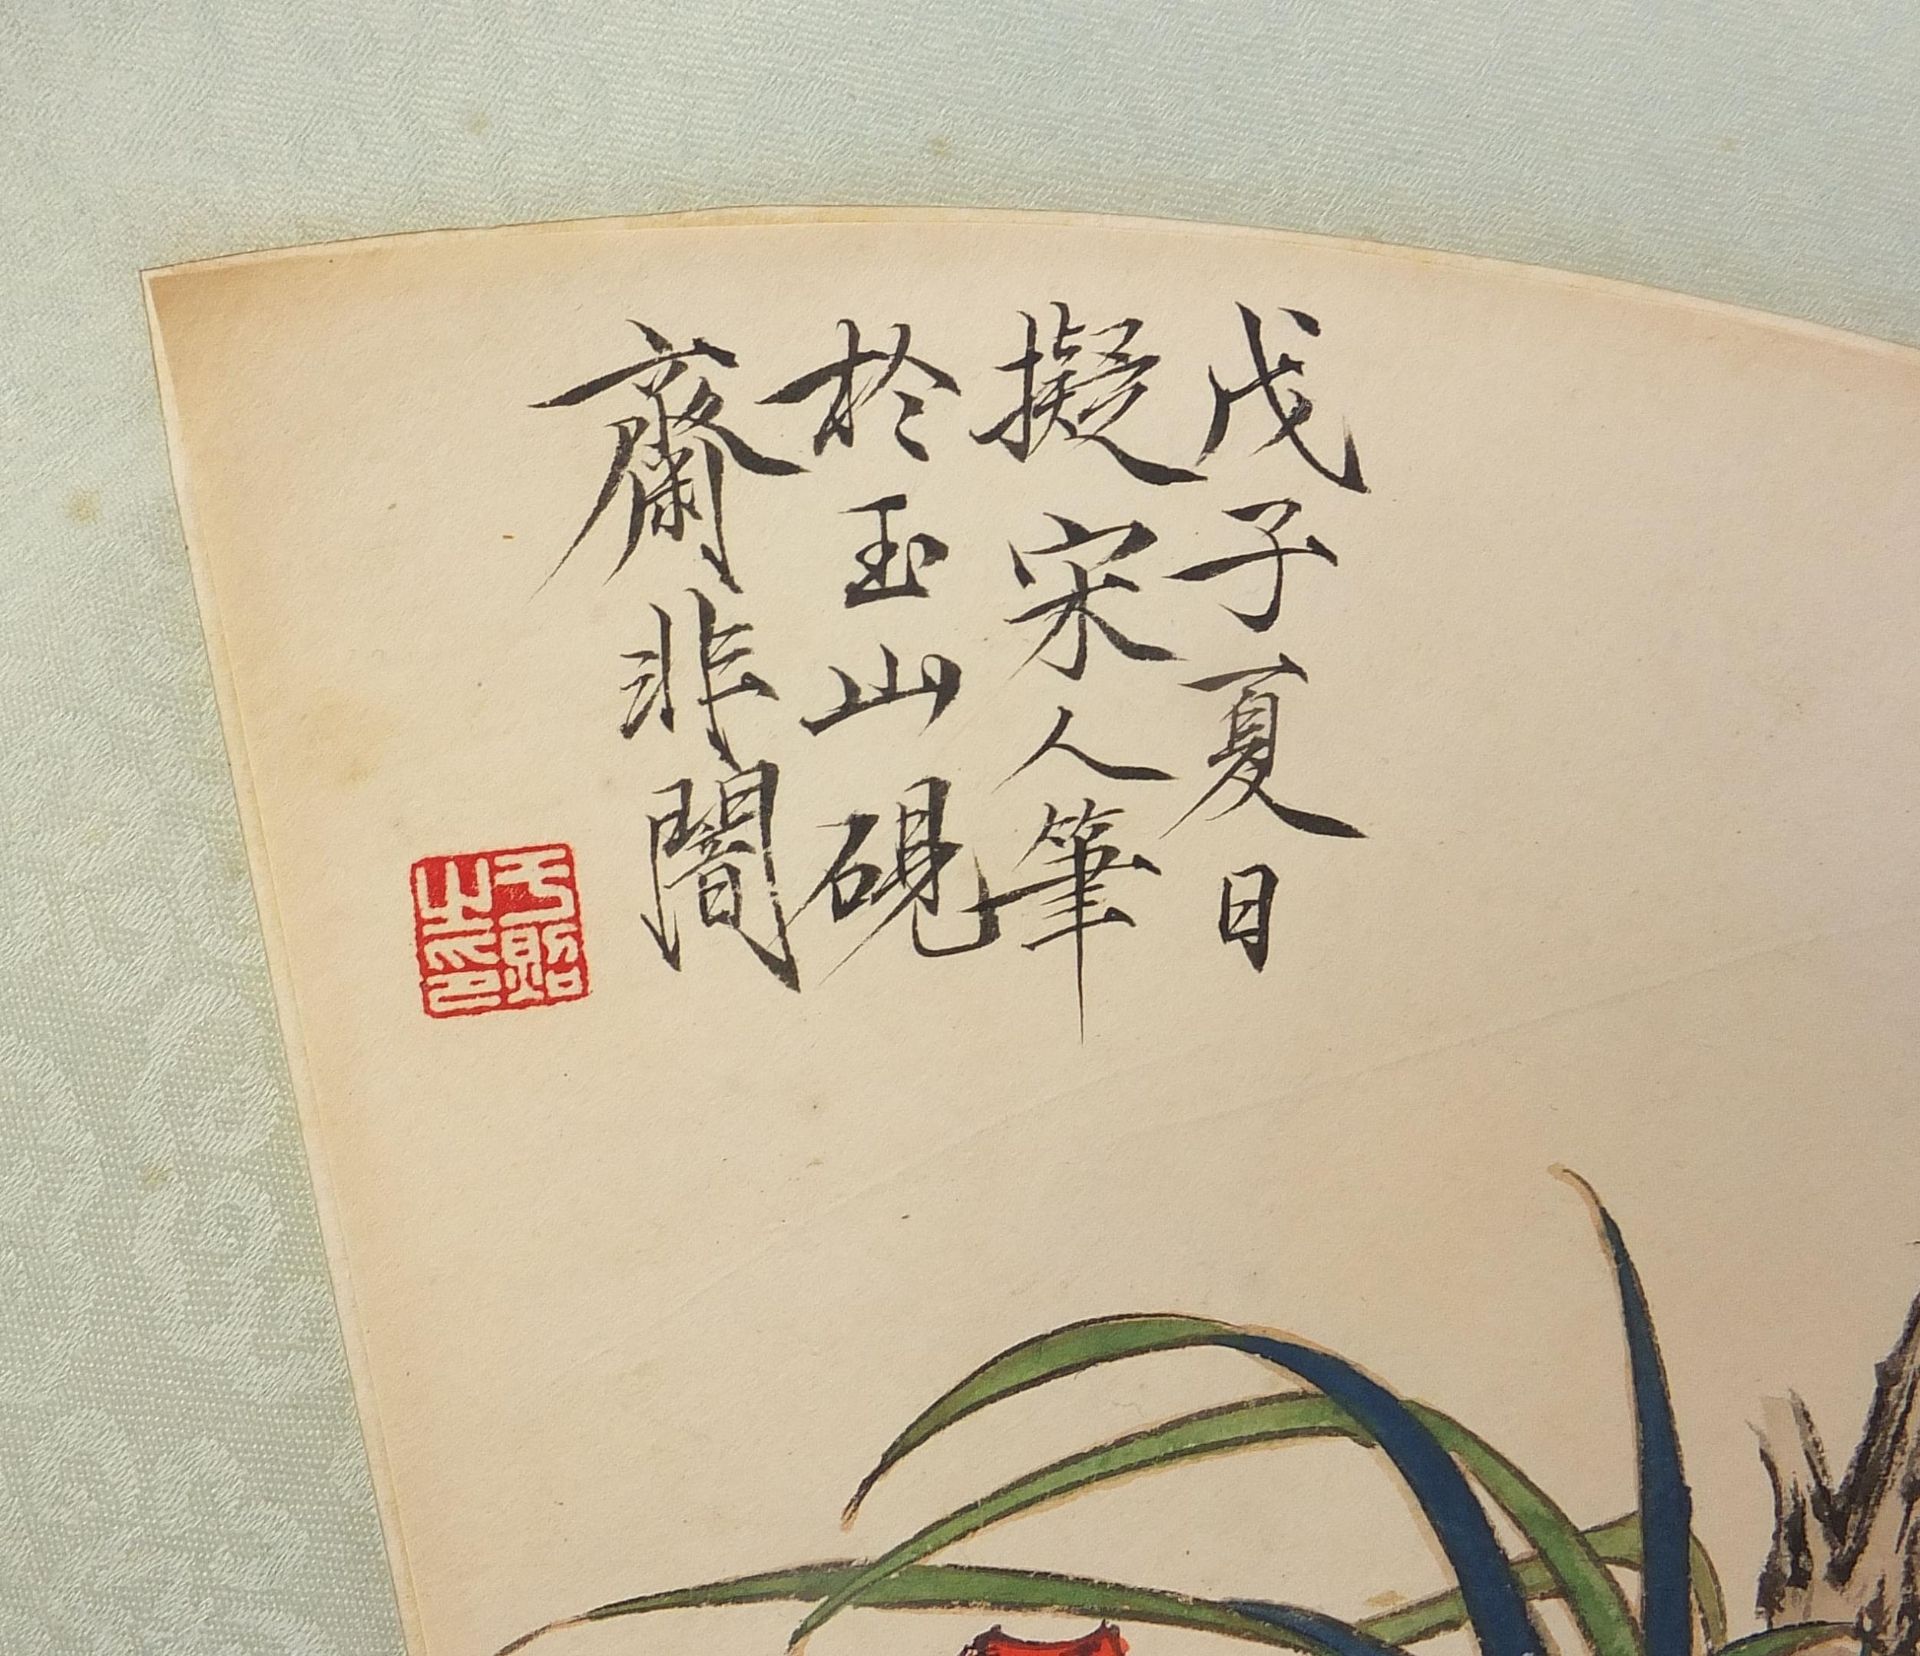 戊子夏日
擬宋人筆
於玉山硯
齋非闇
于照之印